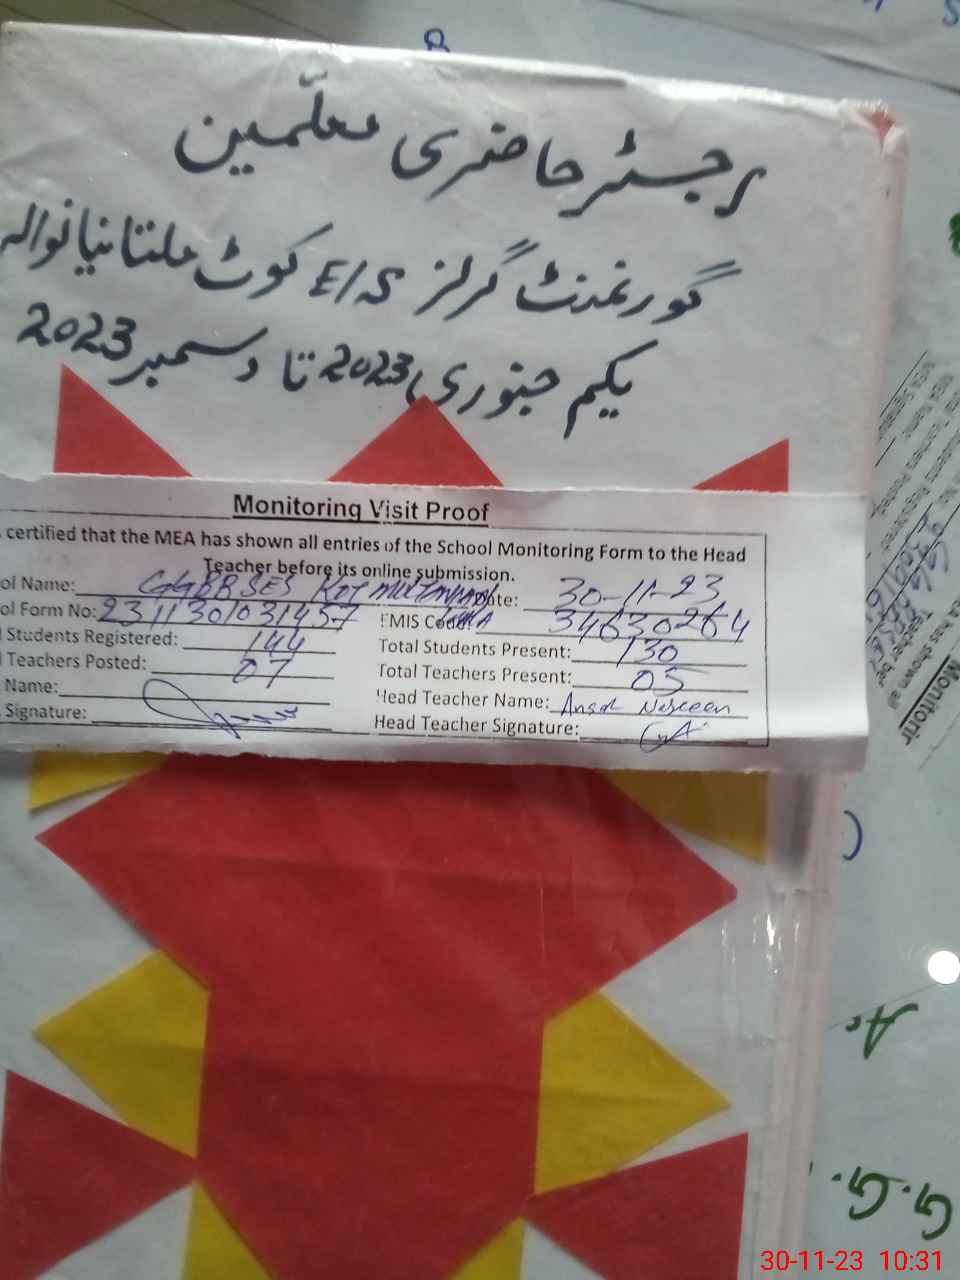 رجسٹر حاضری معلّمین
گورنمنٹ گرلز E/S کوٹ ملتانیانوالہ
یکم جنوری 2023 تا دسمبر 2023
Monitoring Visit Proof
certified that the MEA has shown all entries of the School Monitoring Form to the Head
Teacher before its online submission.
ol Name: Kot Date: 30-11-23
ol Form No: 2311301031457 EMIS Code: 34630264
Students Registered: 144 Total Students Present: 130
Teachers Posted: 07 Total Teachers Present: 05
Name: Head Teacher Name: Nasreen
Signature: Head Teacher Signature:
30-11-23 10:31